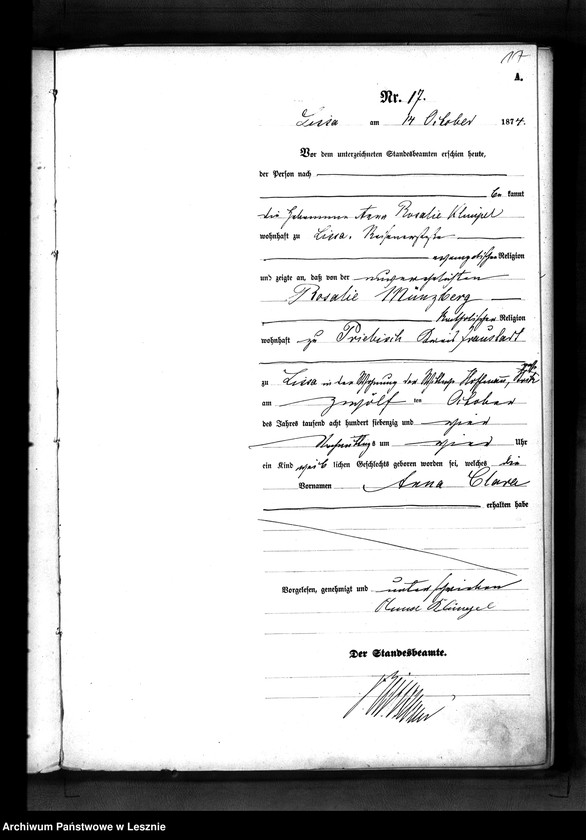 17
A.
Nr. 17.
Lissa am 14 October 1874.
Vor dem unterzeichneten Standesbeamten erschien heute,
der Person nach
be kannt
die Hebamme Anna Rosalie Klimpel
wohnhaft zu Lissa,
evangelischer Religion
und zeigte an, daß von der unverehelichten
Rosalie Münzberg
katholischer Religion
wohnhaft zu Priebisch Kreis Fraustadt
zu Lissa in der Wohnung der Hoffmann,
am zwölf ten October
des Jahres tausend acht hundert siebenzig und vier
Nachmittags um vier Uhr
ein Kind weib lichen Geschlechts geboren worden sei, welches die
Vornamen Anna Clara
erhalten habe
Vorgelesen, genehmigt und unterschrieben
Der Standesbeamte.
Archiwum Państwowe w Lesznie